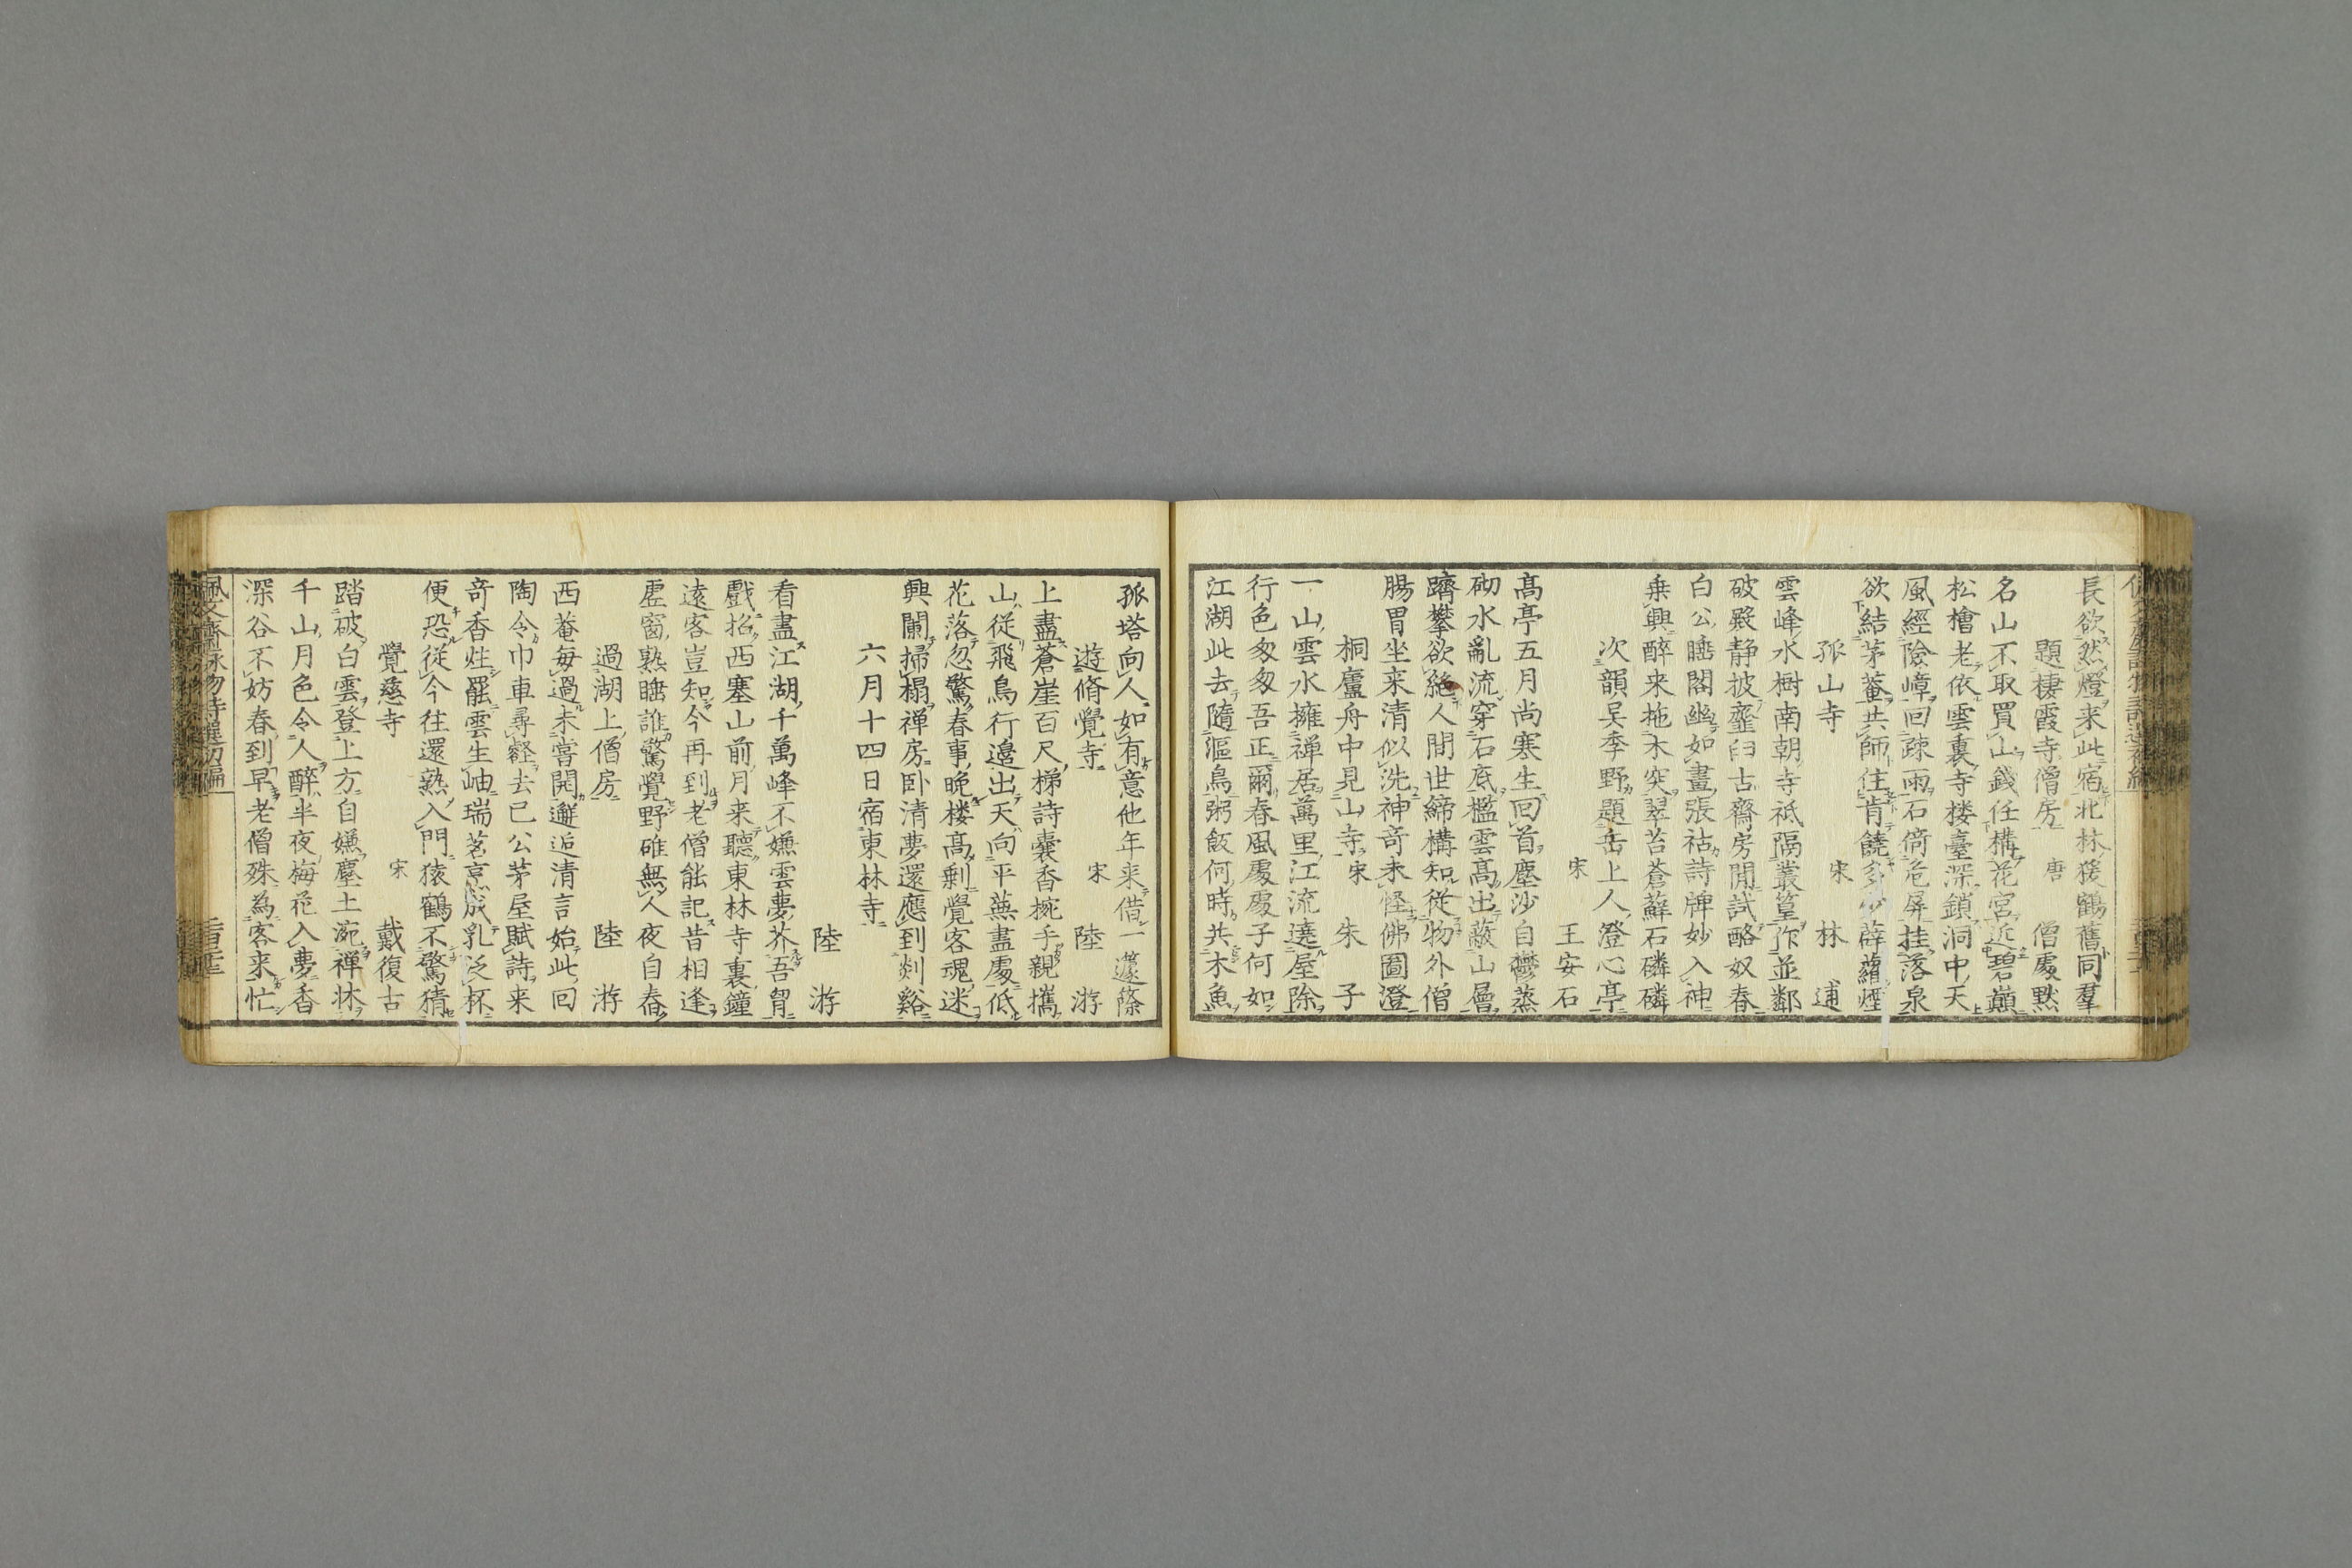 長欲然燈来此宿北林猨鶴舊同羣
題棲霞寺僧房 唐 僧處黙
名山不取買山錢任構花宮近碧巔
松檜老依雲裏寺楼臺深鎖洞中天
風經險嶂回疎雨石倚危屏挂落泉
欲結茅菴共師住肯饒多少薜蘿煙
孤山寺 宋 林逋
雲峰水樹南朝寺祗隔叢篁作並鄰
破殿静披虀臼古齋房閒試酪奴春
白公睡閣幽如畫張祜詩牌妙入神
乗興醉来拖木突翠苔蒼蘚石磷磷
次韻吴季野題岳上人澄心亭
宋 王安石
髙亭五月尚寒生回首塵沙自鬱蒸
砌水亂流穿石底檻雲髙出蔽山層
躋攀欲絶人間世締構知従物外僧
腸胃坐来清似洗神竒未怪佛圖澄
桐廬舟中見山寺 宋 朱子
一山雲水擁禅居萬里江流遶屋除
行色匆匆吾正爾春風處處子何如
江湖此去隨漚鳥粥飯何時共木魚
孤塔向人如有意他年来借一籧篨
遊脩覺寺 宋 陸游
上盡蒼崖百尺梯詩囊香椀手親攜
山従飛鳥行邉出天向平蕪盡處低
花落忽驚春事晩楼髙剰覺客魂迷
興闌掃榻禅房卧清夢還應到剡谿
六月十四日宿東林寺
陸游
看盡江湖千萬峰不嫌雲夢芥吾胷
戲招西塞山前月来聽東林寺裏鐘
遠客豈知今再到老僧能記昔相逢
虚窗熟睡誰驚覺野碓無人夜自舂
過湖上僧房 陸游
西菴毎過未嘗開邂逅清言始此回
陶令巾車尋壑去已公茅屋賦詩来
竒香炷罷雲生岫瑞茗烹成乳泛杯
便恐従今往還熟入門猿鶴不驚猜
覺慈寺 宋 戴復古
踏破白雲登上方自嫌塵土涴禅牀
千山月色令人醉半夜梅花入夢香
深谷不妨春到早老僧殊為客来忙